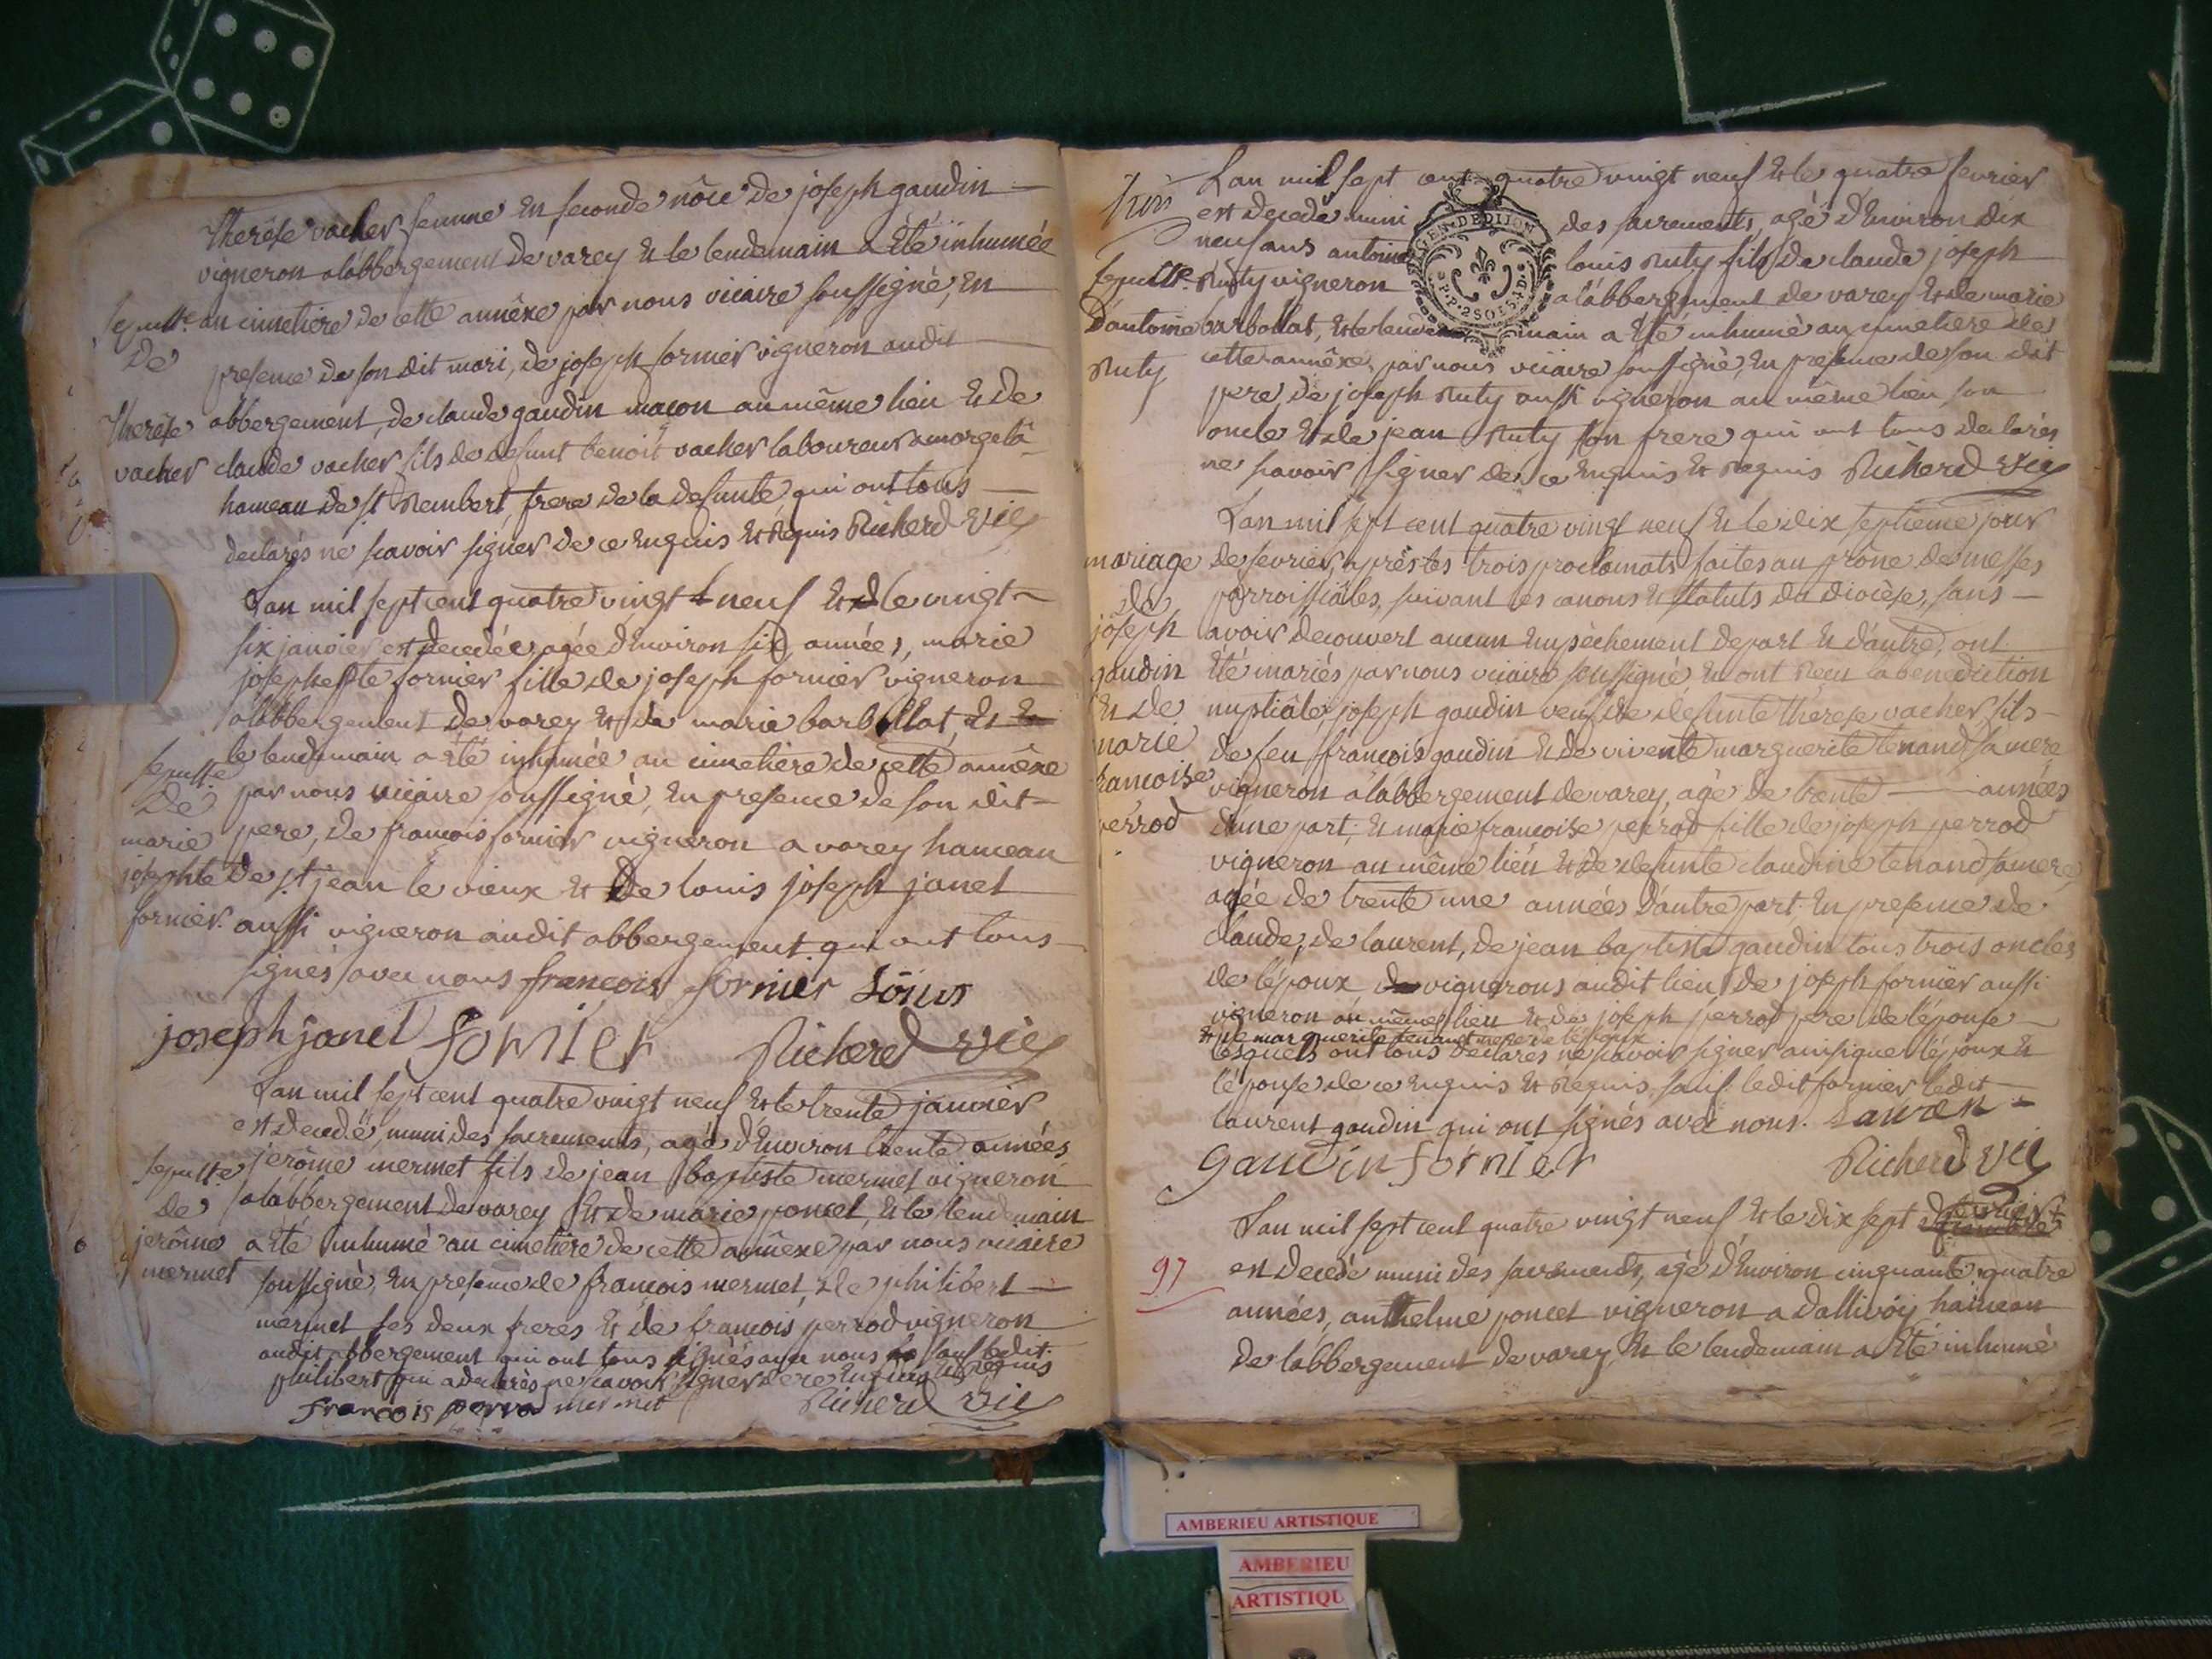 Therêse vacher femme En seconde nôce de joseph gaudin
vigneron alabbergement de varey Et le lendemain a Eté inhumée
Sepultre au cimetiere de cette annêxe par nous vicaire soussigné, En
de presence de son dit mari, de joseph fornier vigneron audit
Therêse abbergement, de claude gaudin maçon au même lieu Et de
vacher claude vacher fils de defunt benoit vacher laboureur a morgelâ
hameau de st Rembert, frere de la defunte qui ont tous
declarés ne scavoir signer de ce Enquis Et Requis Richerd vic
Lan mil sept cent quatre vingt neuf Et le vingt
six janvier est decedée agée d'Environ six années, marie
josephte fornier fille de joseph fornier vigneron
alabbergement de varey Et de marie barbollat, Et
le lendemain a Eté inhumée au cimetiere de cette annêxe
Sepultre
de par nous vicaire soussigné, En presence de son dit
marie pere, de francois fornier vigneron a varey hameau
josephte de st jean le vieux Et de louis joseph janet
fornier. aussi vigneron audit abbergement qui ont tous
signés avec nous francois fornier
joseph janet fornier Richerd vic
Lan mil sept cent quatre vingt neuf Et le trente janvier
est decedé, muni des sacrements, agé d'Environ trente années
Sepultre jerôme mermet fils de jean baptiste mermet vigneron
de alabbergement de varey Et de marie poncet, Et le lendemain
jerôme a Eté Inhumé au cimetiere de cette annêxe par nous vicaire
mermet soussigné, En presence de francois mermet, de philibert
mermet ses deux freres Et de francois perrod vigneron
audit abbergement qui ont tous signés avec nous sauf ledit
philibert qui a declarés ne scavoir signer de ce Enquis Et Requis
francois perrod mermet Richerd vic
Lan mil sept cent quatre vingt neuf Et le quatre fevrier
est decedé muni des sacrements, agé d'Environ dix
neuf ans antoine louis Ruty fils de claude joseph
GEN. DE DIJON
2 SOLS
Sepultre Ruty vigneron alabbergement de varey Et de marie
d'antoine barbollat, Et le lendemain a Eté inhumé au cimetiere de
Ruty cette annêxe, par nous vicaire soussigné, En presence de son dit
pere, de joseph Ruty aussi vigneron au même lieu, son
oncle Et de jean Ruty son frere qui ont tous declarés
ne scavoir signer de ce Enquis Et Requis Richerd vic
Lan mil sept cent quatre vingt neuf Et le dix septieme jour
mariage de fevrier, aprês les trois proclamats faites au prône de messes
de parroissiales, suivant les canons Et statuts du diocèse, sans
joseph avoir decouvert aucun Empêchement de part Et d'autre, ont
gaudin Eté mariés par nous vicaire soussigné Et ont Reçu la benediction
Et de nuptiâle, joseph gaudin veuf de defunte therese vacher, fils
marie de feu francois gaudin Et de vivente marguerite tenand sa mere
francoise vigneron alabbergement de varey, agé de trente années
perrod d'une part; Et marie francoise perrod fille de joseph perrod
vigneron au même lieu Et de defunte claudine tenand sa mere,
agée de trente une années d'autre part. En presence de
claude, de laurent, de jean baptiste gaudin tous trois oncles
de lépoux, vignerons audit lieu, de joseph fornier aussi
vigneron au même lieu Et de joseph perrod pere de lépouse
Et de marguerite tenand mere de lépoux
lesquels ont tous declarés ne scavoir signer ainsi que lépoux Et
lépouse de ce Enquis Et Requis, sauf ledit fornier ledit
laurent gaudin qui ont signés avec nous. Lauren
gaudin fornier Richerd vic
Lan mil sept cent quatre vingt neuf Et le dix sept fevrier
97 est decedé muni des sacrements, agé d'Environ cinquante quatre
années, anthelme poncet vigneron a dallivoy hameau
de labbergement de varey, Et le lendemain a Eté inhumé
AMBERIEU ARTISTIQUE
AMBERIEU
ARTISTIQU